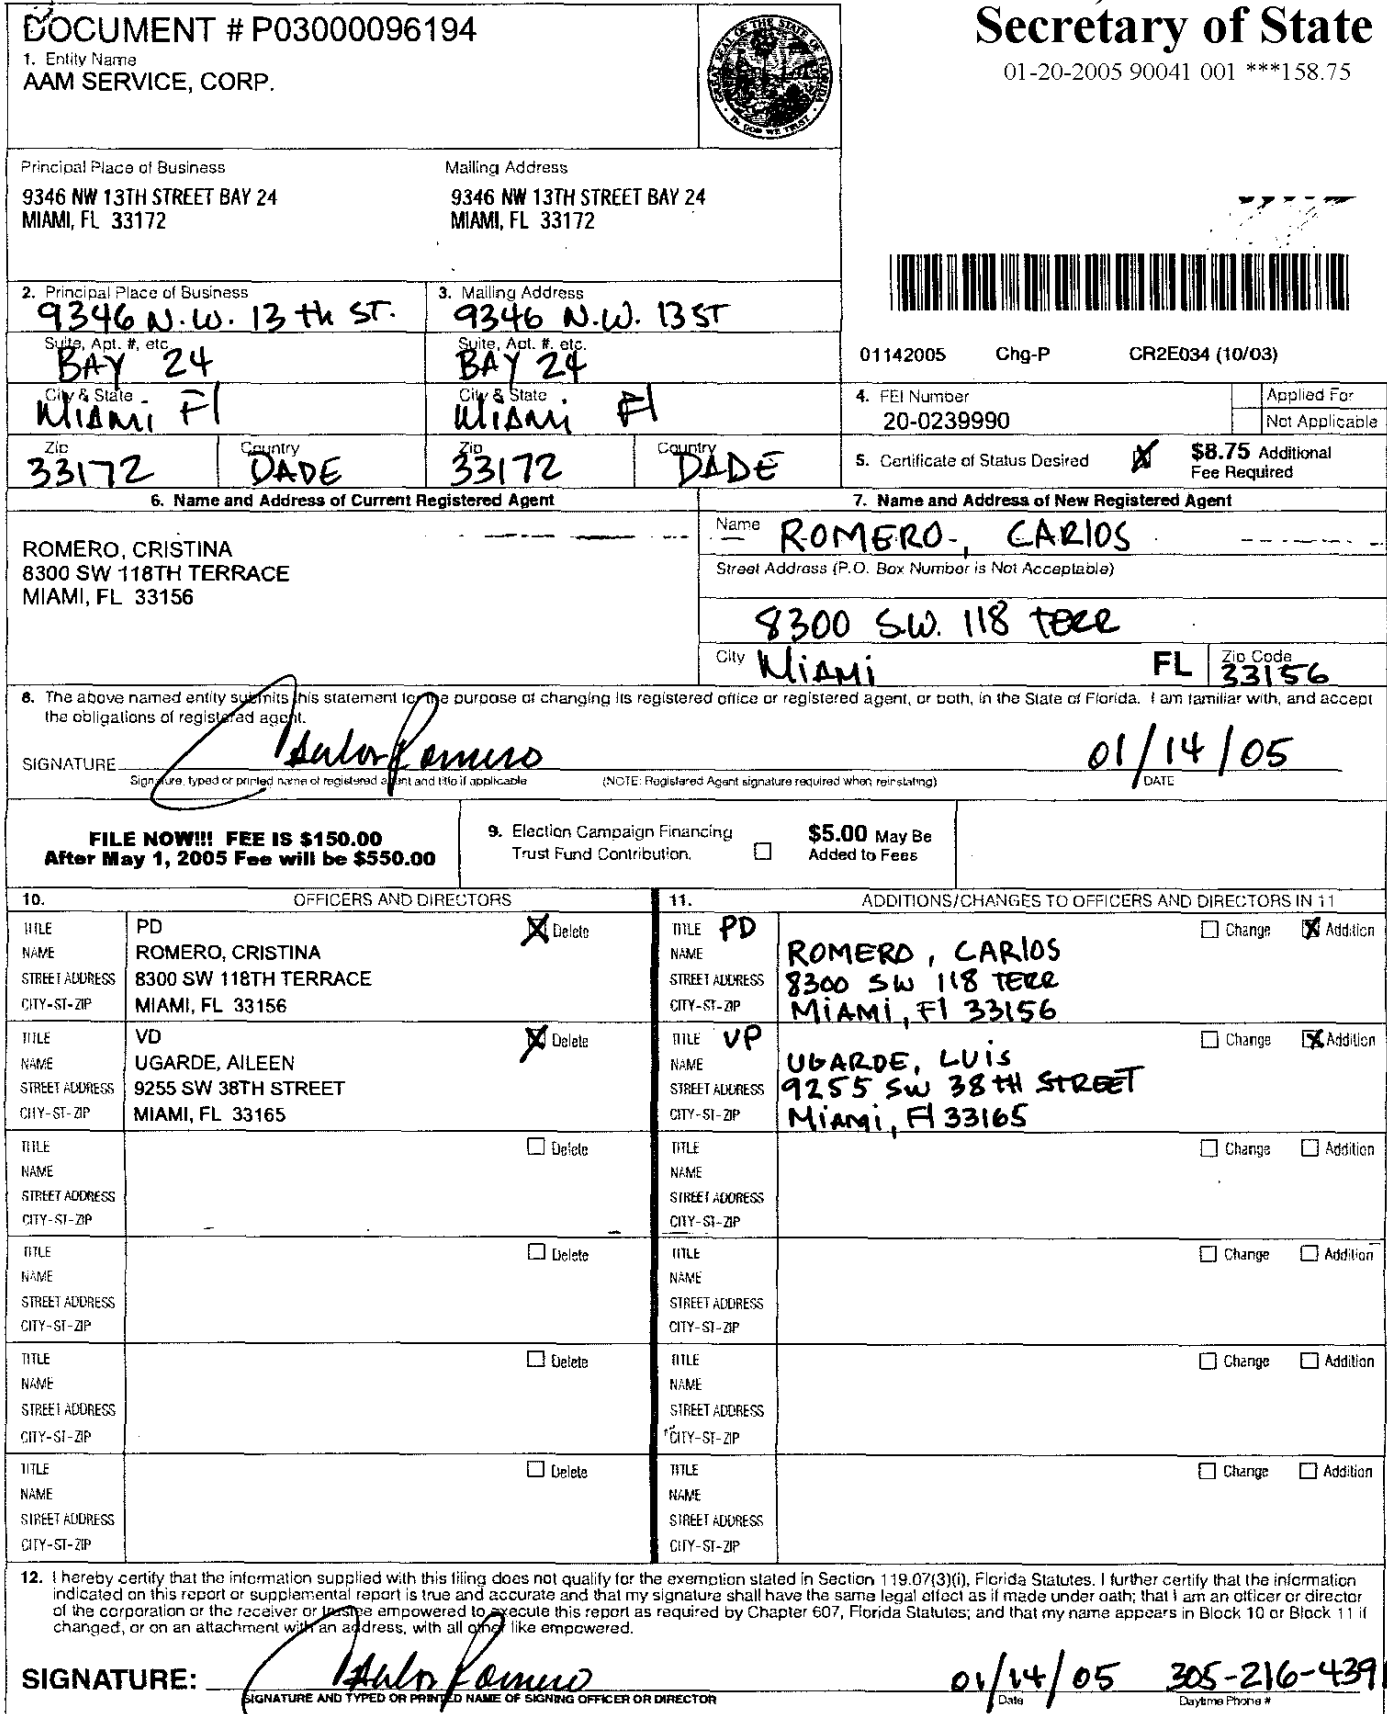 DOCUMENT # P03000096194
1. Entity Name
AAM SERVICE, CORP.
GREAT SEAL OF THE STATE OF FLORIDA
IN GOD WE TRUST
Secretary of State
01-20-2005 90041 001 ***158.75
Principal Place of Business
9346 NW 13TH STREET BAY 24
MIAMI, FL 33172
Mailing Address
9346 NW 13TH STREET BAY 24
MIAMI, FL 33172
2. Principal Place of Business
9346 N.W. 13 th ST.
Suite, Apt. #, etc.
BAY 24
City & State
Miami Fl
Zip
33172
Country
DADE
3. Mailing Address
9346 N.W. 13 ST
Suite, Apt. #, etc.
BAY 24
City & State
Miami Fl
Zip
33172
Country
DADE
01142005 Chg-P CR2E034 (10/03)
4. FEI Number
20-0239990
Applied For
Not Applicable
5. Certificate of Status Desired X $8.75 Additional
Fee Required
6. Name and Address of Current Registered Agent
ROMERO, CRISTINA
8300 SW 118TH TERRACE
MIAMI, FL 33156
7. Name and Address of New Registered Agent
Name ROMERO, CARlOS
Street Address (P.O. Box Number is Not Acceptable)
8300 S.W. 118 TERR
City Miami FL Zip Code 33156
8. The above named entity submits this statement for the purpose of changing its registered office or registered agent, or both, in the State of Florida. I am familiar with, and accept
the obligations of registered agent.
SIGNATURE Carlos Romero 01/14/05
Signature, typed or printed name of registered agent and title if applicable (NOTE: Registered Agent signature required when reinstating) DATE
FILE NOW!!! FEE IS $150.00
After May 1, 2005 Fee will be $550.00
9. Election Campaign Financing
Trust Fund Contribution.
$5.00 May Be
Added to Fees
10. OFFICERS AND DIRECTORS
TITLE PD X Delete
NAME ROMERO, CRISTINA
STREET ADDRESS 8300 SW 118TH TERRACE
CITY-ST-ZIP MIAMI, FL 33156
TITLE VD X Delete
NAME UGARDE, AILEEN
STREET ADDRESS 9255 SW 38TH STREET
CITY-ST-ZIP MIAMI, FL 33165
TITLE Delete
NAME
STREET ADDRESS
CITY-ST-ZIP
TITLE Delete
NAME
STREET ADDRESS
CITY-ST-ZIP
TITLE Delete
NAME
STREET ADDRESS
CITY-ST-ZIP
TITLE Delete
NAME
STREET ADDRESS
CITY-ST-ZIP
11. ADDITIONS/CHANGES TO OFFICERS AND DIRECTORS IN 11
TITLE PD Change X Addition
NAME ROMERO, CARlOS
STREET ADDRESS 8300 SW 118 TERR
CITY-ST-ZIP Miami, Fl 33156
TITLE VP Change X Addition
NAME UGARDE, LUiS
STREET ADDRESS 9255 SW 38 tH STREET
CITY-ST-ZIP Miami, Fl 33165
TITLE Change Addition
NAME
STREET ADDRESS
CITY-ST-ZIP
TITLE Change Addition
NAME
STREET ADDRESS
CITY-ST-ZIP
TITLE Change Addition
NAME
STREET ADDRESS
CITY-ST-ZIP
TITLE Change Addition
NAME
STREET ADDRESS
CITY-ST-ZIP
12. I hereby certify that the information supplied with this filing does not qualify for the exemption stated in Section 119.07(3)(i), Florida Statutes. I further certify that the information
indicated on this report or supplemental report is true and accurate and that my signature shall have the same legal effect as if made under oath; that I am an officer or director
of the corporation or the receiver or trustee empowered to execute this report as required by Chapter 607, Florida Statutes; and that my name appears in Block 10 or Block 11 if
changed, or on an attachment with an address, with all other like empowered.
SIGNATURE: Carlos Romero 01/14/05 305-216-4391
SIGNATURE AND TYPED OR PRINTED NAME OF SIGNING OFFICER OR DIRECTOR Date Daytime Phone #